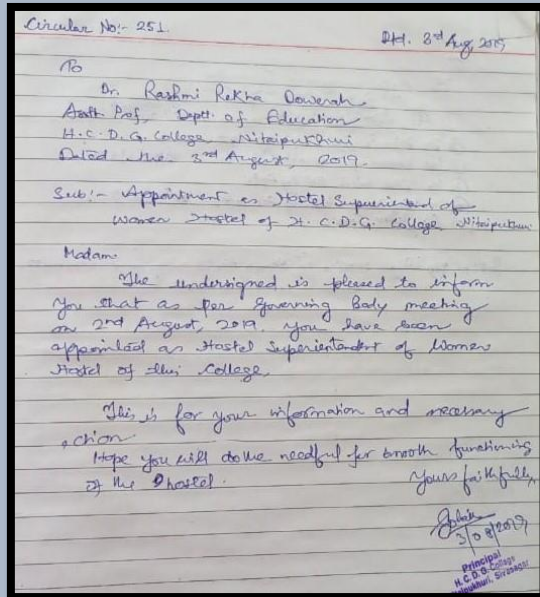 Circular No:- 251
Dtd. 3rd Aug 2019
To
Dr. Rashmi Rekha Dowerah
Asstt. Prof, Deptt. of Education
H.C.D.G. College, Nitaipukhuri
Dated the 3rd August, 2019.
Sub:- Appointment as Hostel Superientend of
women Hostel of H.C.D.G. College Nitaipukhuri
Madam
The undersigned is pleased to inform
you that as per Governing Body meeting
on 2nd August, 2019. you have been
appointed as Hostel Superientendent of Women
Hostel of this College.
This is for your information and necessary
action
Hope you will do the needful for smooth functioning
of the hostel.
Yours faithfully,
3/08/2019
Principal
H.C.D.G. College
Nitaipukhuri, Sivasagar